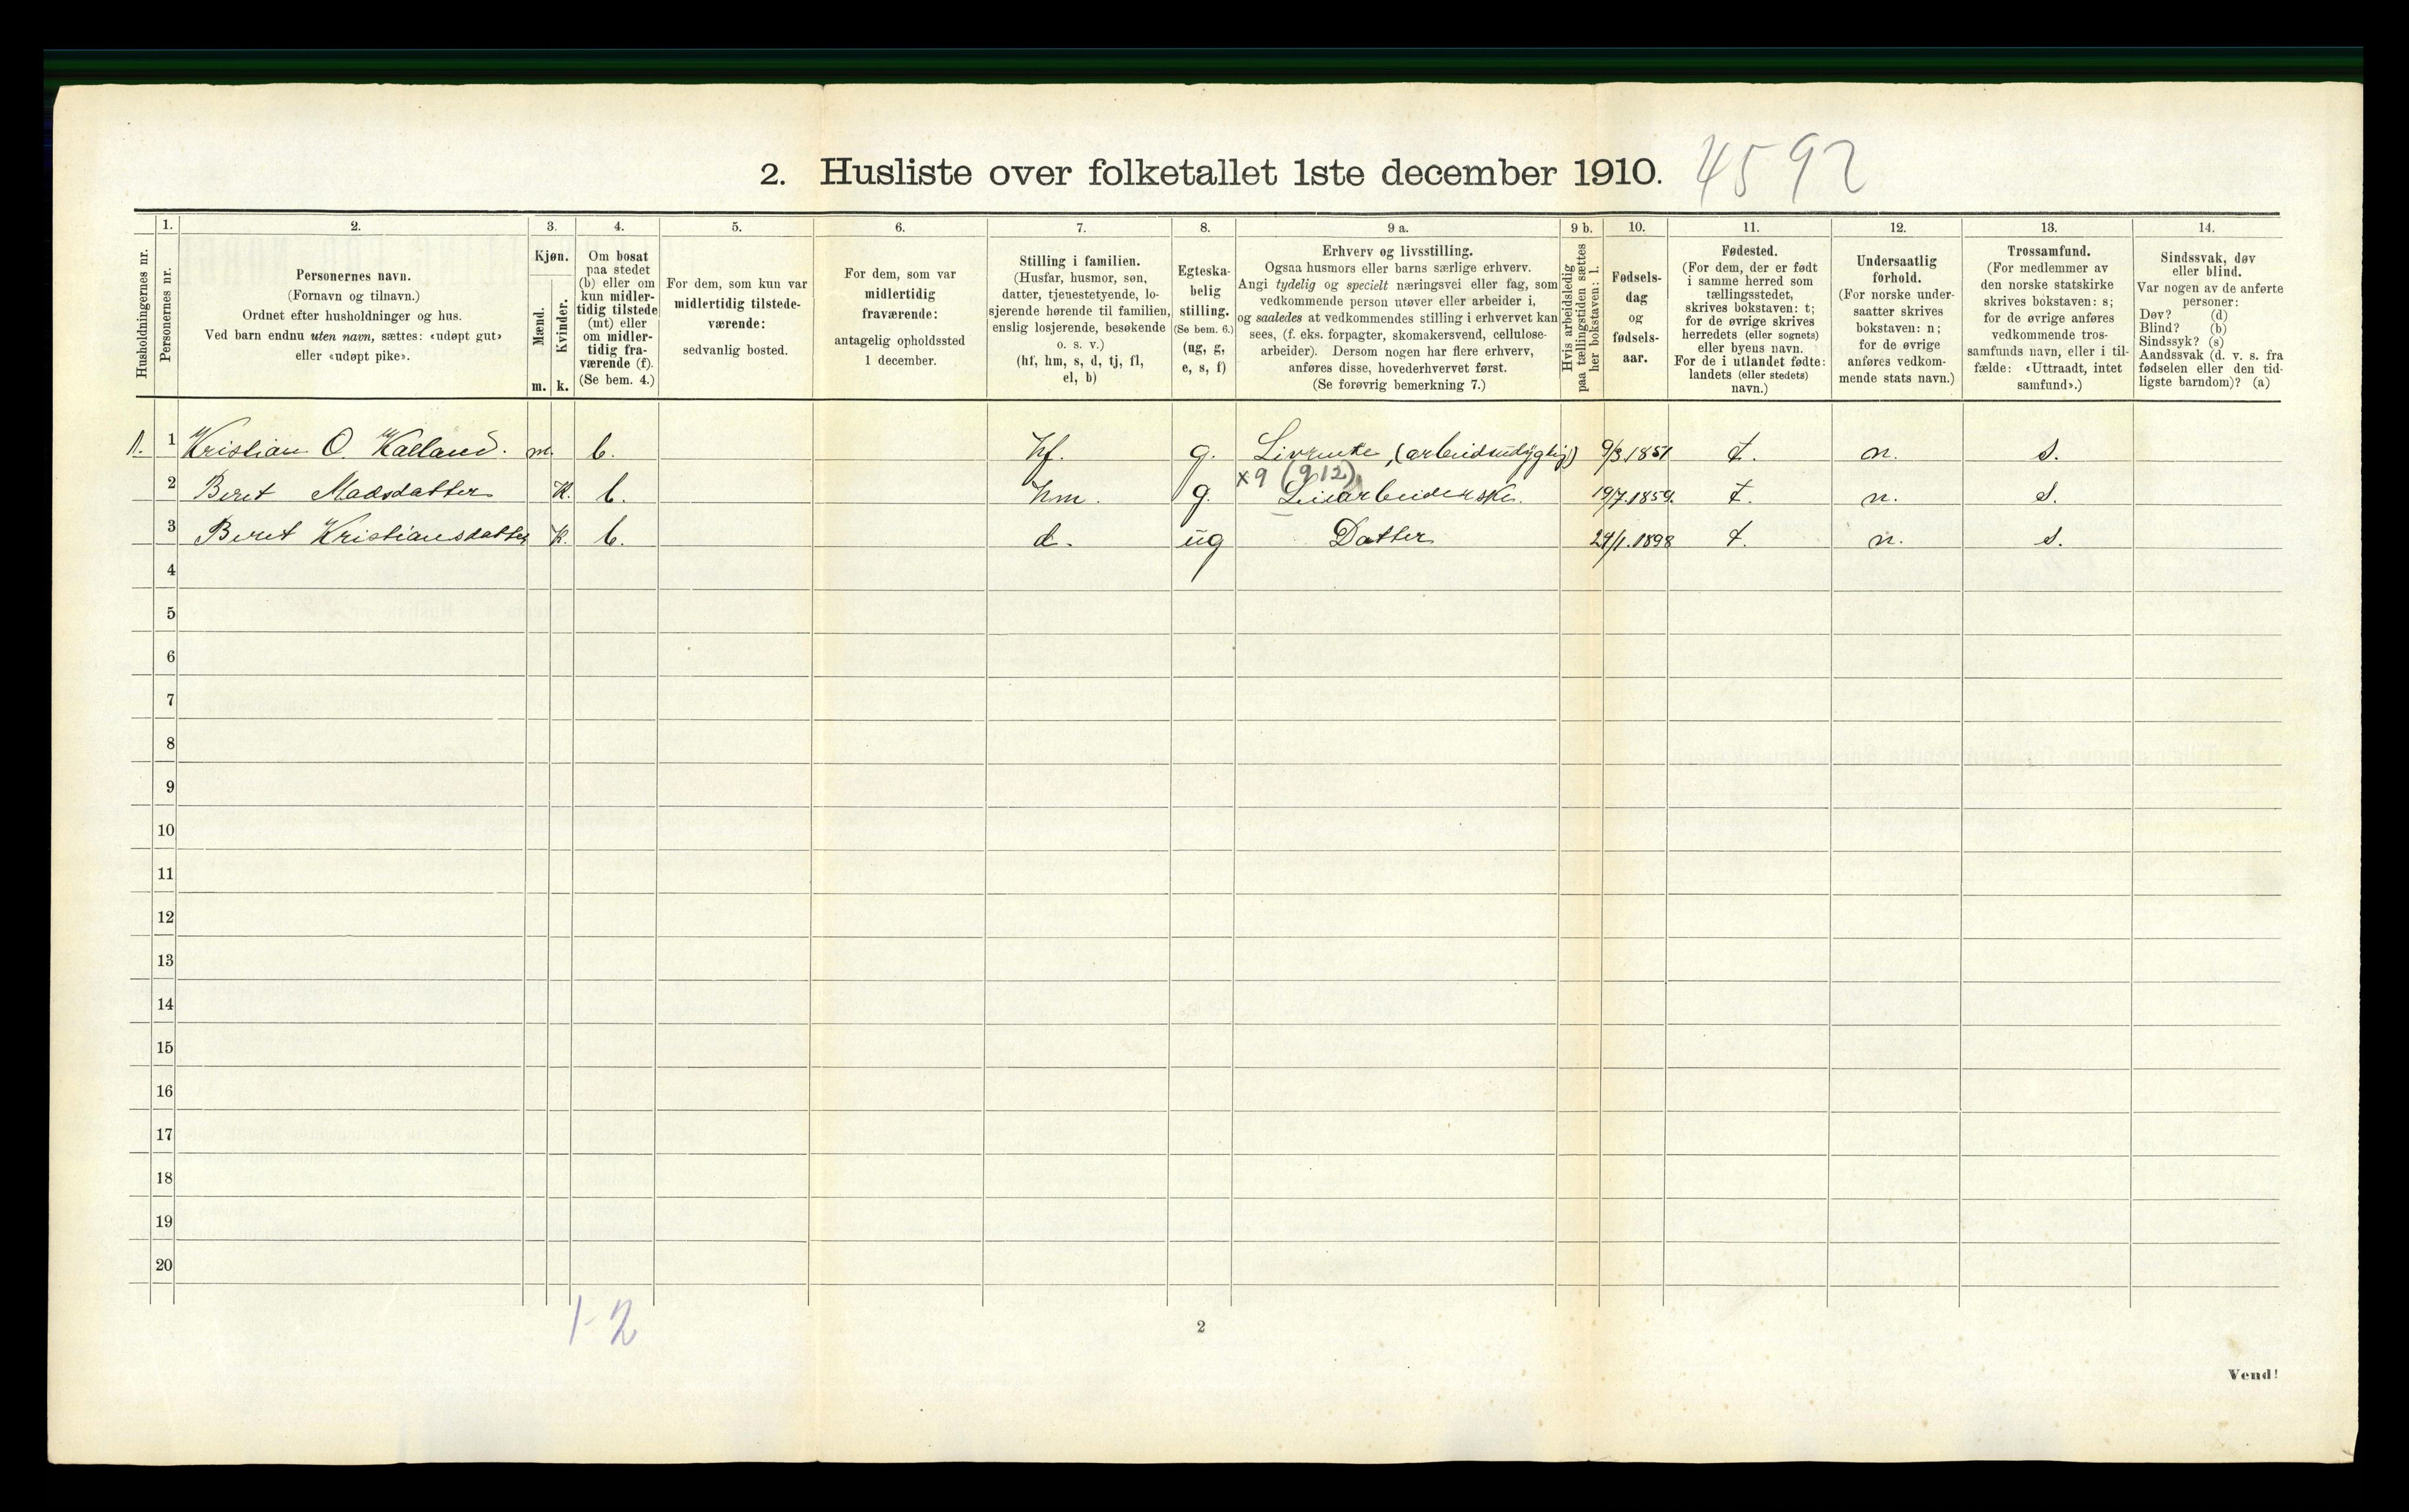 2. Husliste over folketallet 1ste december 1910. 4592
Husholdningernes nr.
1.
Personernes nr.
2.
Personernes navn.
(Fornavn og tilnavn.)
Ordnet efter husholdninger og hus.
Ved barn endnu uten navn, sættes: «udøpt gut»
eller «udøpt pike».
3.
Kjøn.
Mænd.
Kvinder.
m. k.
4.
Om bosat
paa stedet
(b) eller om
kun midler-
tidig tilstede
(mt) eller
om midler-
tidig fra-
værende (f).
(Se bem. 4.)
5.
For dem, som kun var
midlertidig tilstede-
værende:
sedvanlig bosted.
6.
For dem, som var
midlertidig
fraværende:
antagelig opholdssted
1 december.
7.
Stilling i familien.
(Husfar, husmor, søn,
datter, tjenestetyende, lo-
sjerende hørende til familien,
enslig losjerende, besøkende
o. s. v.)
(hf, hm, s, d, tj, fl,
el, b)
8.
Egteska-
belig
stilling.
(Se bem. 6.)
(ug, g,
e, s, f)
9 a.
Erhverv og livsstilling.
Ogsaa husmors eller barns særlige erhverv.
Angi tydelig og specielt næringsvei eller fag, som
vedkommende person utøver eller arbeider i,
og saaledes at vedkommendes stilling i erhvervet kan
sees, (f. eks. forpagter, skomakersvend, cellulose-
arbeider). Dersom nogen har flere erhverv,
anføres disse, hovederhvervet først.
(Se forøvrig bemerkning 7.)
9 b.
Hvis arbeidsledig
paa tællingstiden sættes
her bokstaven: l.
10.
Fødsels-
dag
og
fødsels-
aar.
11.
Fødested.
(For dem, der er født
i samme herred som
tællingsstedet,
skrives bokstaven: t;
for de øvrige skrives
herredets (eller sognets)
eller byens navn.
For de i utlandet fødte:
landets (eller stedets)
navn.)
12.
Undersaatlig
forhold.
(For norske under-
saatter skrives
bokstaven: n;
for de øvrige
anføres vedkom-
mende stats navn.)
13.
Trossamfund.
(For medlemmer av
den norske statskirke
skrives bokstaven: s;
for de øvrige anføres
vedkommende tros-
samfunds navn, eller i til-
fælde: «Uttraadt, intet
samfund».)
14.
Sindssvak, døv
eller blind.
Var nogen av de anførte
personer:
Døv? (d)
Blind? (b)
Sindssyk? (s)
Aandssvak (d. v. s. fra
fødselen eller den tid-
ligste barndom)? (a)
1. 1 Kristian O. Kalland. m. b. hf. g. Livrente, (arbeidsudygtig) 9/3 1851 t. n. s.
x9 (912)
2 Beret Madsdatter K. b. hm. g. 19/7.1859. t. n. s.
3 Beret Kristiansdatter K. b. d. ug Datter 29/1.1898 t. n. s.
4
5
6
7
8
9
10
11
12
13
14
15
16
17
18
19
20
1-2
2
Vend!